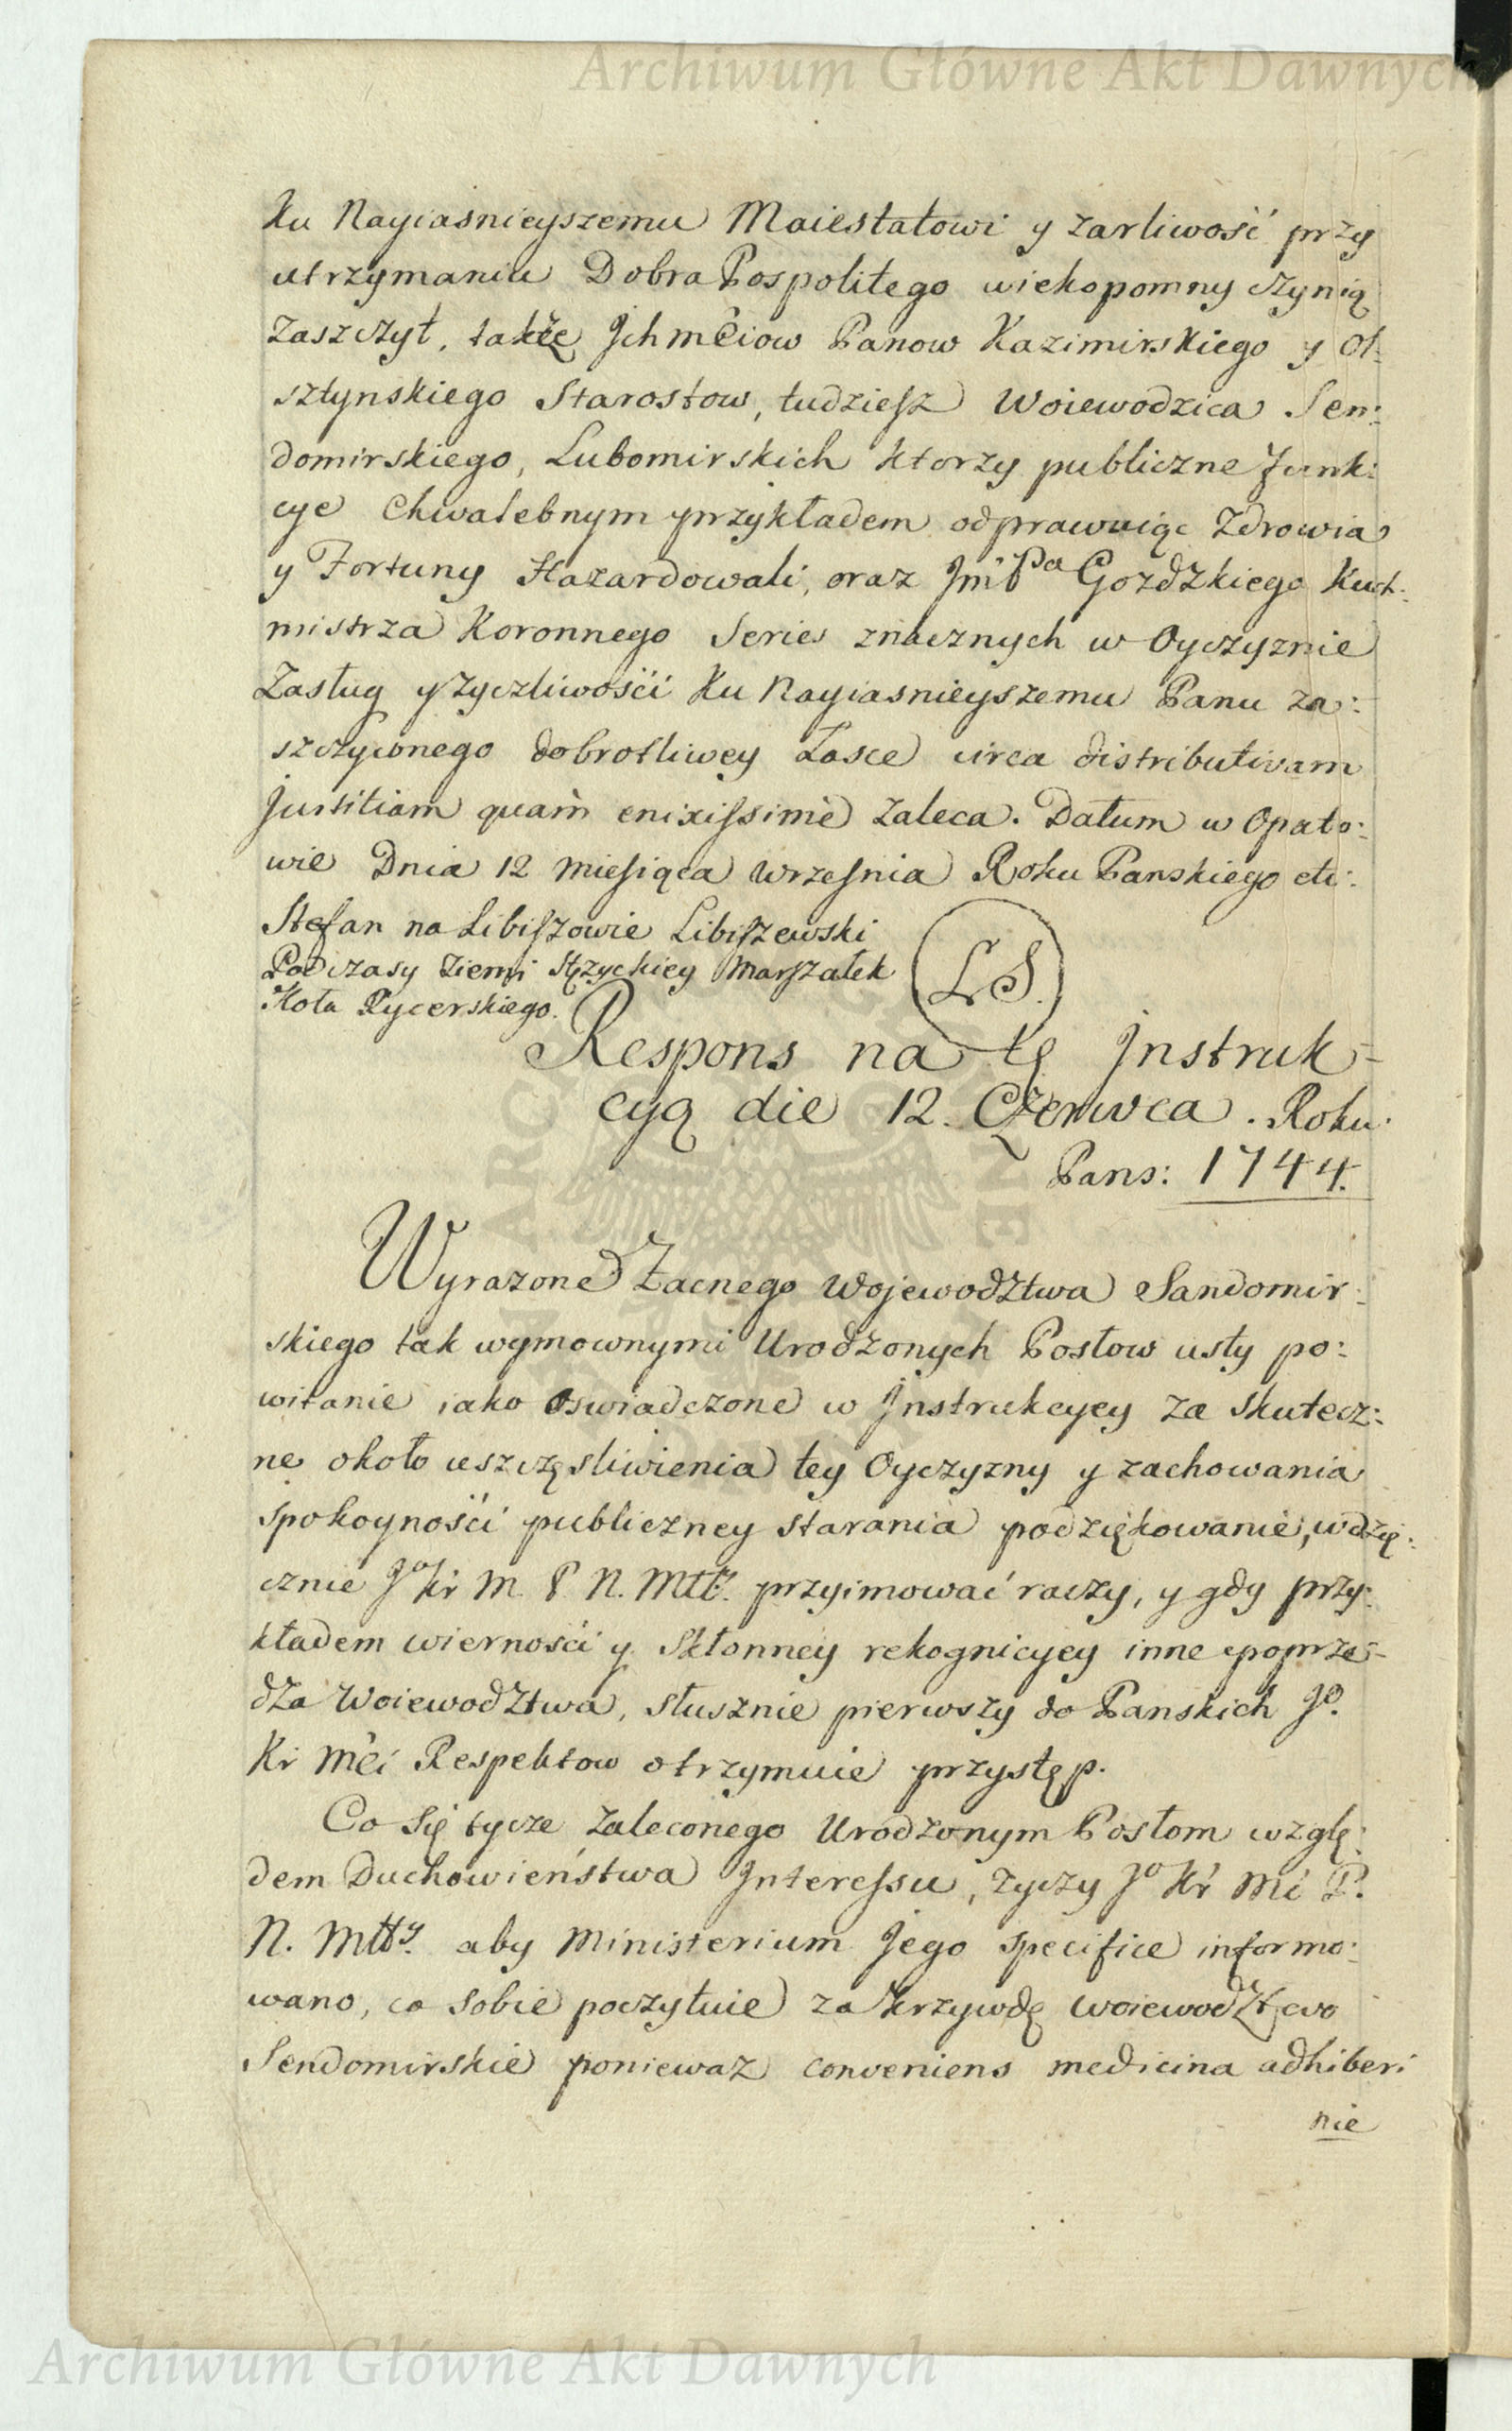 Archiwum Główne Akt Dawnych
Ku Nayiasnieyszemu Maiestatowi y zarliwość przy
utrzymaniu Dobra Pospolitego wiekopomny czynią
Zaszczyt, także Jchmćiow Panow Kazimirskiego y Ol:
sztynskiego Starostow, tudzieſz Woiewodzica Sen:
domirskiego, Lubomirskich ktorzy publiczne funk:
cye Chwalebnym przykładem odprawuiąc Zdrowia
y Fortuny Hazardowali, oraz Jm Pa Gozdzkiego Kuch:
mistrza Koronnego Series znacznych w Oyczyznie
Zasług y życzliwośći Ku Nayiasnieyszemu Panu za:
szczyconego dobrotliwey Łasce circa distributivam
Justitiam quam enixiſsime zaleca. Datum w Opato:
wie Dnia 12 Mieſiąca Wrzeſnia Roku Panskiego etc:
Stefan na Libiſzowie Libiſzewski
Podczasy Ziemi Stężyckiey Marſzałek
Koła Rycerskiego.
LS.
Respons na tę Jnstruk-
cyą die 12. Czerwca. Roku
Pans: 1744.
Wyrazone Zacnego Wojewodztwa Sandomir:
skiego tak wymownymi Urodzonych Posłow usty po:
witanie iako oswiadczone w Jnstrukcyey za skutecz:
ne około uszczęsliwienia tey Oyczyzny y zachowania
spokoynośći publiczney starania podziękowanie, wdzię:
cznie Jo Kr M. P. N. Mtt. przyimować raczy, y gdy przy:
kładem wiernośći y Skłonney rekognicyey inne poprze-
dza Woiewodztwa, słusznie pierwszy do Panskich Jo.
Kr Mći Respektow otrzymuie przystęp.
Co się tycze zaleconego Urodzonym Posłom wzglę:
dem Duchowieństwa Jntereſsu, życzy Jo Kr Mć P.
N. Mtty. aby Ministerium Jego specifice informo:
wano, co sobie poczytuie za krzywdę Woiewodztwo
Sendomirskie poniewaz conveniens medicina adhiberi
nie
Archiwum Główne Akt Dawnych